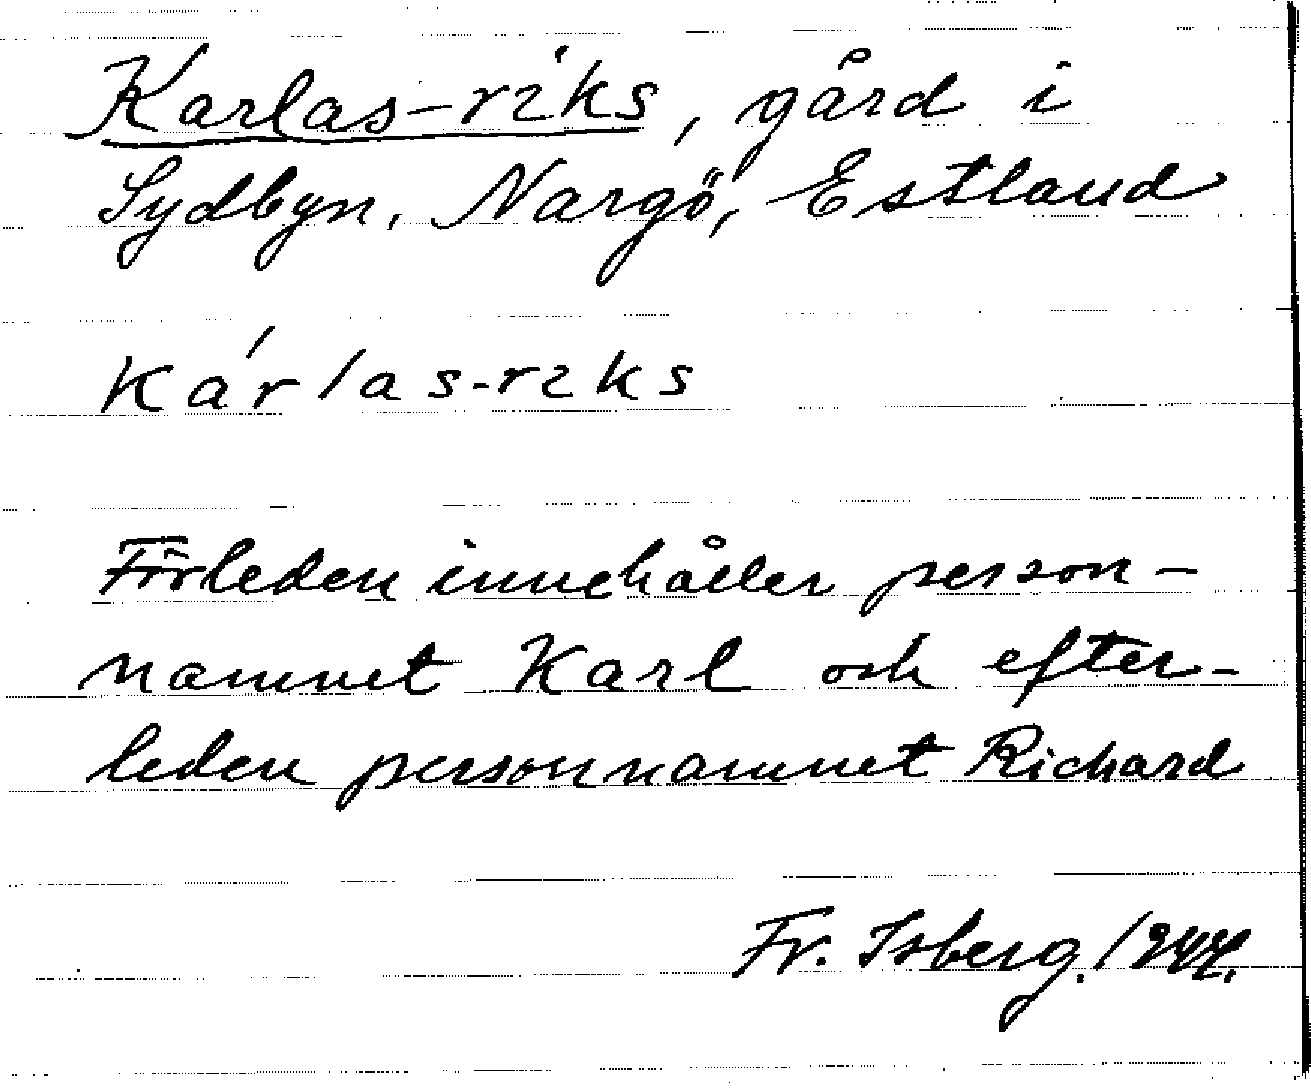 Karlas-riks, gård i
Sydbyn, Nargö, Estland
ká́rlas-rıks
Förleden innehåller person-
namnet Karl och efter-
leden personnamnet Richard
Fr. Isberg. 1944.